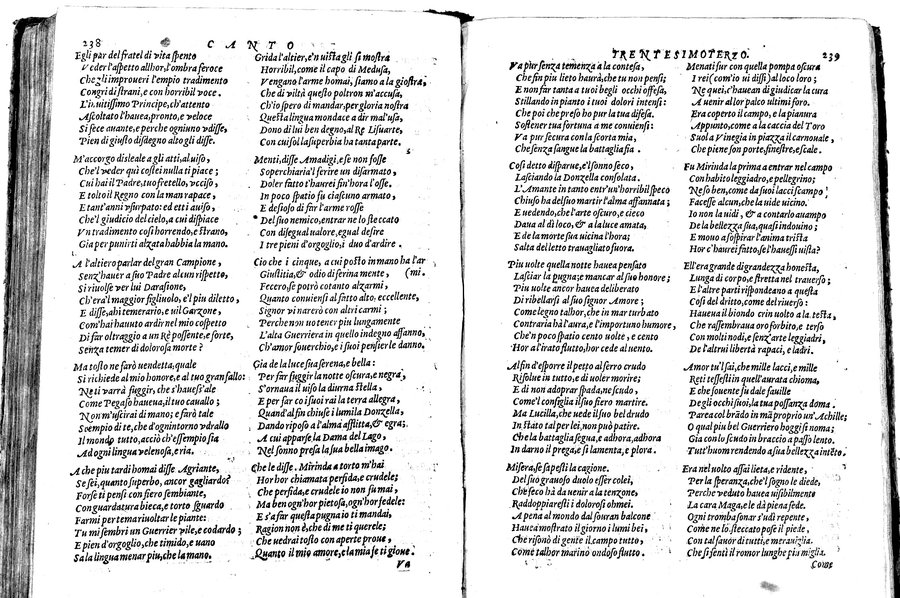 238 CANTO
Egli par del fratel di vita spento
Veder l'aspetto allhor, l'ombra feroce
Che gli improveri l'empio tradimento
Con gridi strani, e con horribil voce.
L'invitissimo Principe, ch'attento
Ascoltato l'havea, pronto, e veloce
Si fece avante, e perche ogniuno udisse,
Pien di giusto disdegno alto gli disse.
M'accorgo disleale a gli atti, al viso,
Che'l veder qui costei nulla ti piace;
Cui hai il Padre, tuo fratello, ucciso,
E tolto il Regno con la man rapace,
E tant'anni usurpato: ed etti aviso,
Che'l giudicio del cielo, a cui dispiace
Un tradimento cosi horrendo, e strano,
Gia per punirti alzata habbia la mano.
A l'altiero parlar del gran Campione,
Senz'hauer a suo Padre alcun rispetto,
Si rivolse ver lui Darasione,
Ch'era'l maggior figliuolo, e'l piu diletto,
E disse, ahi temerario, e vil Garzone,
Com'hai havuto ardir nel mio cospetto
Di far oltraggio a un Rè possente, e forte,
Senza temer di dolorosa morte?
Ma tosto ne farò vendetta, quale
Si richiede al mio honore, e al tuo gran fallo:
Ne ti varrà fuggir, che s'havess'ale
Come Pegaso haveva, il tuo cavallo;
Non m'uscirai di mano; e farò tale
Scempio di te, che d'ogn'intorno udrallo
Il mondo tutto, acciò ch'essempio sia
Ad ogni lingua velenosa, e ria.
A che piu tardi homai disse Agriante,
Se sei, quanto superbo, ancor gagliardo?
Forse ti pensi con fiero sembiante,
Con guardatura bieca, e torto sguardo
Farmi per tema rivoltar le piante:
Tu mi sembri un Guerrier vile, e codardo;
E pien d'orgoglio, che timido, e vano
Sa la lingua menar piu, che la mano.
Grida l'altier, e'n vista gli si mostra
Horribil, come il capo di Medusa,
Vengano l'arme homai, siamo a la giostra,
Che di viltà questo poltron m'accusa,
Ch'io spero di mandar, per gloria nostra
Questa lingua mondace a dir mal'usa,
Dono di lui ben degno, al Rè Lisuarte,
Con cui sol la superbia ha tanta parte.
Menti, disse Amadigi, e se non fosse
Soperchiaria'l ferire un disarmato,
Doler fatto t'haurei fin'hora l'osse.
In poco spatio fu ciascuno armato,
E desioso di far l'arme rosse
Del suo nemico, entrar ne lo steccato
Con disegual valore, egual desire
I tre pieni d'orgoglio, i duo d'ardire.
Cio che i cinque, a cui posto in mano ha l'armi.
Giustitia, & odio di ferina mente,
Fecero, se potrò cotanto alzarmi,
Quanto conviensi al fatto alto, eccellente,
Signor vi narerò con altri carmi;
Perche non vo tener piu lungamente
L'alta Guerriera in quello indegno affanno,
Ch'amor soverchio, e i suoi pensier le danno.
Gia de la luce sua serena, e bella:
Per far fuggir la notte oscura, e negra,
S'ornava il viso la diurna stella,
E per far co i suoi rai la terra allegra,
Quand'al fin chiuse i lumi la Donzella,
Dando riposo a l'alma afflitta, & egra;
A cui apparse la Dama del Lago,
Nel sonno presa la sua bella imago.
Che le disse. Mirinda a torto m'hai
Hor hor chiamata perfida, e crudele;
Che perfida, e crudele io non fu mai,
Ma ben ogn'hor pietosa, ogn'hor fedele:
E s'a far questa pugna io ti mandai,
Ragion non è, che di me ti querele;
Che vedrai tosto con aperte prove,
Quanto il mio amore, e la mia fe ti giove.
Va
TRENTESIMOTERZO. 239
Va pur senza temenza a la contesa,
Che fin piu lieto haurà, che tu non pensi;
E non far tanta a tuoi begli occhi offesa,
Stillando in pianto i tuoi dolori intensi:
Che poi che preso ho pur la tua difesa,
Sostener tua fortuna a me conviensi:
Va pur secura con la scorta mia,
Che senza sangue la battaglia fia.
Cosi detto disparue, e'l sonno seco,
Lasciando la Donzella consolata.
L'Amante in tanto entr'un'horribil speco
Chiuso ha del suo martir l'alma affannata;
E vedendo, che l'arte oscuro, e cieco
Daua al dì loco, & a la luce amata,
E de la morte sua vicina l'hora;
Salta del letto travagliato fuora.
Piu volte quella notte hauea pensato
Lasciar la pugna; e mancar al suo honore;
Piu volte ancor hauea deliberato
Di ribellarsi al suo signor Amore;
Come legno talhor, che in mar turbato
Contraria hà l'aura, e l'importuno humore,
Che'n poco spatio cento volte, e cento
Hor a l'irato flutto, hor cede al vento.
Al fin d'esporre il petto al ferro crudo
Risolue in tutto, e di voler morire;
E di non adoprar spada, ne scudo,
Come'l consiglia il suo fiero martire.
Ma Lucilla, che vede il suo bel drudo
In stato tal per lei, non può patire.
Che la battaglia segua, e adhora, adhora
In darno il prega, e si lamenta, e plora.
Misera, se sapesti la cagione.
Del suo gravoso duolo esser colei,
Che seco hà da venir a la tenzone,
Raddoppiaresti i dolorosi ohmei.
A pena al mondo dal souran balcone
Hauea mostrato il giorno i lumi bei,
Che risonò di gente il campo tutto,
Come talhor marino ondoso flutto.
Menati fur con quella pompa oscura
I rei (com'io vi dissi) al loco loro;
Ne quei, c'hauean di giudicar la cura
A venir al lor palco ultimi foro.
Era coperto il campo, e la pianura
Appunto, come a la caccia del Toro
Suol a Vinegia in piazza il carnouale,
Che piene son porte, finestre, e scale.
Fu Mirinda la prima a entrar nel campo
Con habito leggiadro, e pellegrino;
Ne so ben, come da suoi lacci scampo
Facesse alcun, che la vide vicino.
Io non la vidi, & a contarlo auampo
De la bellezza sua, quasi indovino;
E movo a sospirar l'anima trista
Hor c'haurei fatto, se l'havessi vista?
Ell'era grande di grandezza honesta,
Lunga di corpo, e stretta nel traverso;
E l'altre parti rispondeano a questa
Così del dritto, come del riverso:
Haueua il biondo crin volto a la testa,
Che rassembrava oro forbito, e terso
Con molti nodi, e senz'arte leggiadri,
De l'altrui libertà rapaci, e ladri.
Amor tu'l sai, che mille lacci, e mille
Reti tessesti in quell'aurata chioma,
E che sovente fu dale faville
Degli occhi suoi, la tua possanza doma.
Parea col brādo in mā proprio un'Achille;
O qual piu bel Guerriero hoggi si noma;
Gia con lo scudo in braccio a passo lento.
Tutt'huom rendendo a sua bellezza intēto.
Era nel volto assai lieta, e ridente,
Per la speranza, che'l sogno le diede,
Perche veduto havea visibilmente
La cara Maga, e le dà piena fede.
Ogni tromba sonar s'udì repente,
Come ne lo steccato pose il piede.
Con tal favor di tutti, e meraviglia,
Che si sentì il romor lunghe piu miglia.
Come